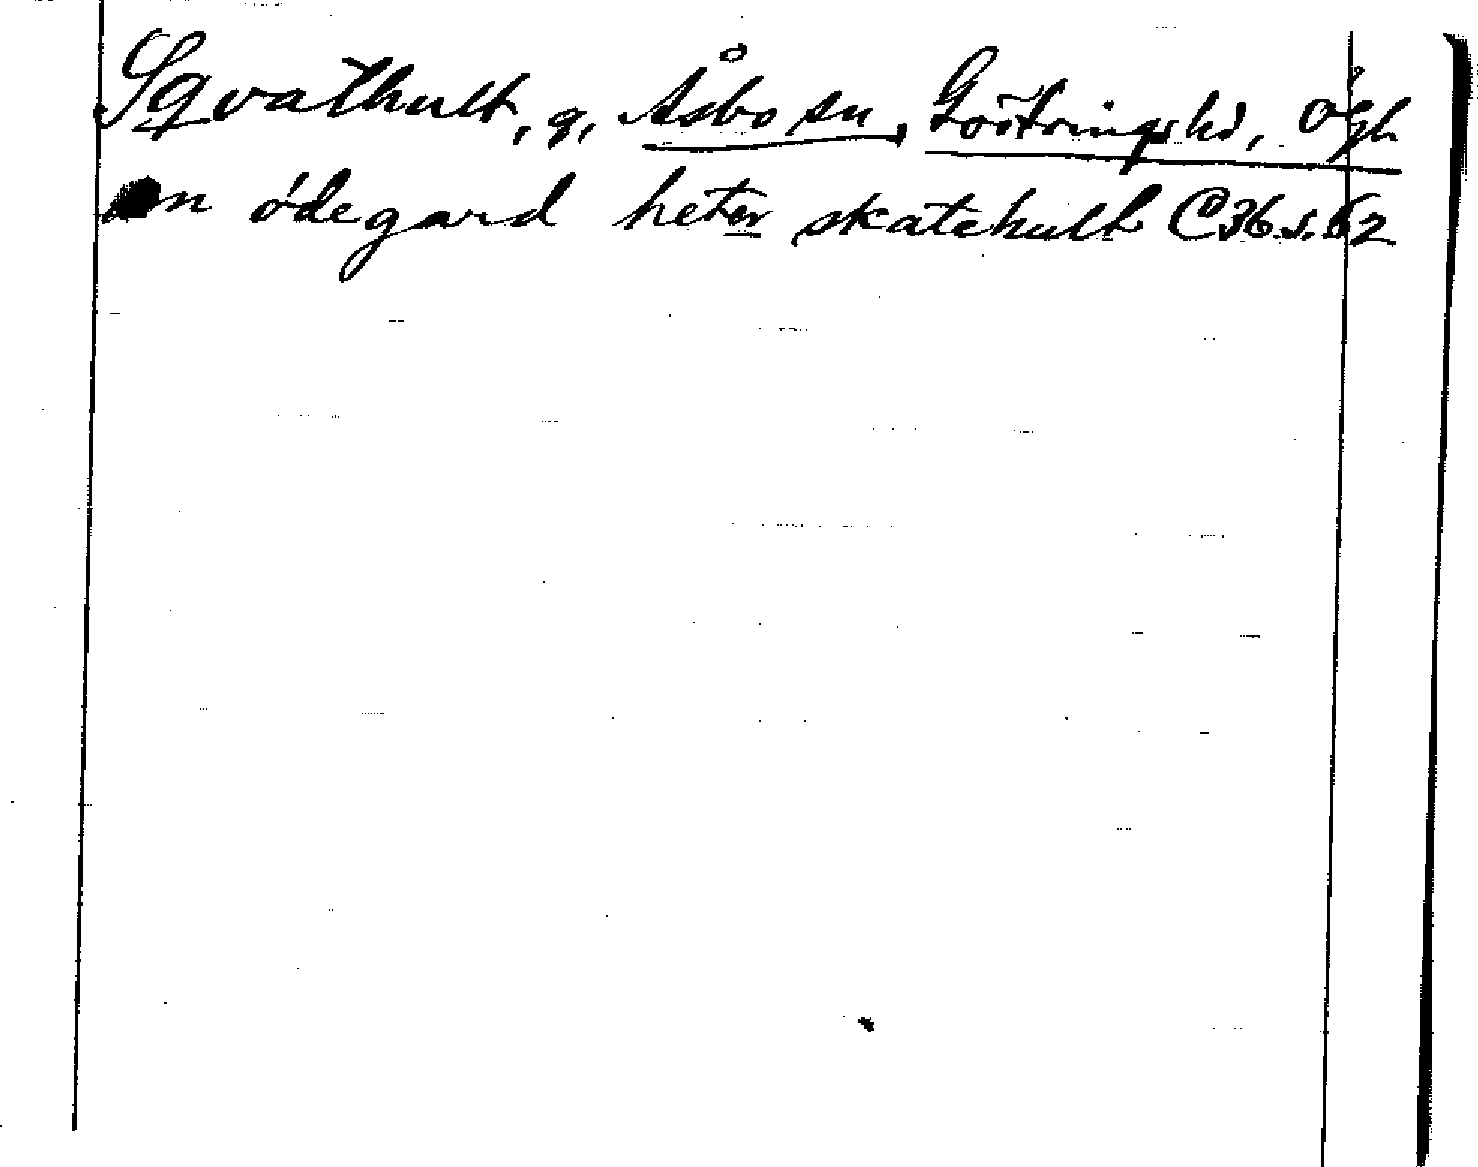 Sqvathult, g, Åsbo sn, Göstringshd, Ögl
en ødegard heter skatehult C36 s. 62